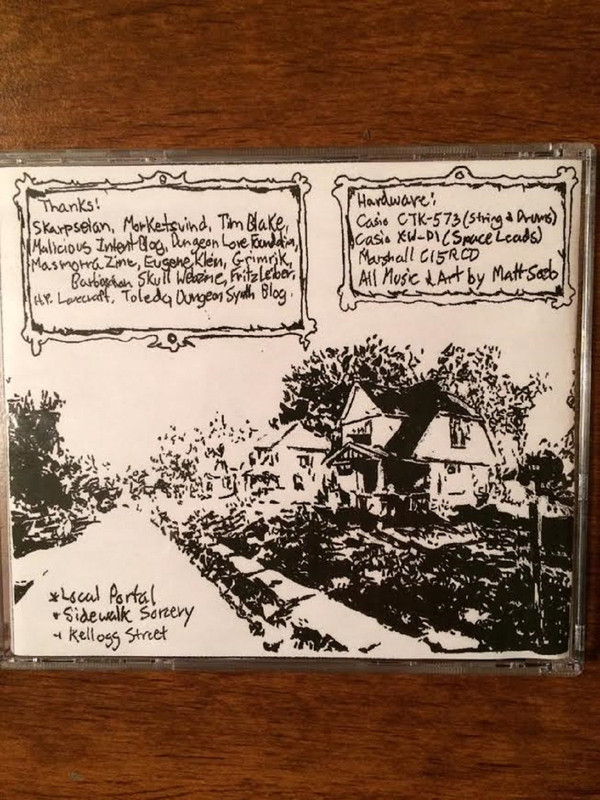 Thanks!
Skarpseian, Morketsvind, Tim Blake,
Malicious Intent Blog, Dungeon Love Foundation,
Masmorra Zine, Eugene Klein, Grimrik,
Barbarian Skull Webzine, Fritz Leiber,
H.P. Lovecraft, Toledq Dungeon Synth Blog.
Hardware:
Casio CTK-573 (String & Drums)
Casio XW-P1 (Space Leads)
Marshall G15RCD
All Music & Art by Matt
* Local Portal
* Sidewalk Sorcery
* Kellogg Street